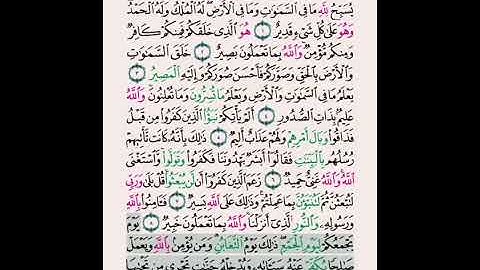 يُسَبِّحُ لِلَّهِ مَا فِي السَّمَٰوَٰتِ وَمَا فِي الْأَرْضِ ۖ لَهُ الْمُلْكُ وَلَهُ الْحَمْدُ ۖ
وَهُوَ عَلَىٰ كُلِّ شَيْءٍ قَدِيرٌ ١ هُوَ الَّذِي خَلَقَكُمْ فَمِنكُمْ كَافِرٌ
وَمِنكُم مُّؤْمِنٌ ۚ وَاللَّهُ بِمَا تَعْمَلُونَ بَصِيرٌ ٢ خَلَقَ السَّمَٰوَٰتِ
وَالْأَرْضَ بِالْحَقِّ وَصَوَّرَكُمْ فَأَحْسَنَ صُوَرَكُمْ ۖ وَإِلَيْهِ الْمَصِيرُ ٣
يَعْلَمُ مَا فِي السَّمَٰوَٰتِ وَالْأَرْضِ وَيَعْلَمُ مَا تُسِرُّونَ وَمَا تُعْلِنُونَ ۚ وَاللَّهُ
عَلِيمٌ بِذَاتِ الصُّدُورِ ٤ أَلَمْ يَأْتِكُمْ نَبَؤُا الَّذِينَ كَفَرُوا مِن قَبْلُ
فَذَاقُوا وَبَالَ أَمْرِهِمْ وَلَهُمْ عَذَابٌ أَلِيمٌ ٥ ذَٰلِكَ بِأَنَّهُ كَانَت تَّأْتِيهِمْ
رُسُلُهُم بِالْبَيِّنَٰتِ فَقَالُوا أَبَشَرٌ يَهْدُونَنَا فَكَفَرُوا وَتَوَلَّوا ۚ وَّاسْتَغْنَى
اللَّهُ ۚ وَاللَّهُ غَنِيٌّ حَمِيدٌ ٦ زَعَمَ الَّذِينَ كَفَرُوا أَن لَّن يُبْعَثُوا ۚ قُلْ بَلَىٰ وَرَبِّي
لَتُبْعَثُنَّ ثُمَّ لَتُنَبَّؤُنَّ بِمَا عَمِلْتُمْ ۚ وَذَٰلِكَ عَلَى اللَّهِ يَسِيرٌ ٧ فَـَٔامِنُوا بِاللَّهِ
وَرَسُولِهِ وَالنُّورِ الَّذِي أَنزَلْنَا ۚ وَاللَّهُ بِمَا تَعْمَلُونَ خَبِيرٌ ٨ يَوْمَ
يَجْمَعُكُمْ لِيَوْمِ الْجَمْعِ ۖ ذَٰلِكَ يَوْمُ التَّغَابُنِ ۗ وَمَن يُؤْمِن بِاللَّهِ وَيَعْمَلْ
صَٰلِحًا يُكَفِّرْ عَنْهُ سَيِّـَٔاتِهِ وَيُدْخِلْهُ جَنَّٰتٍ تَجْرِي مِن تَحْتِهَا